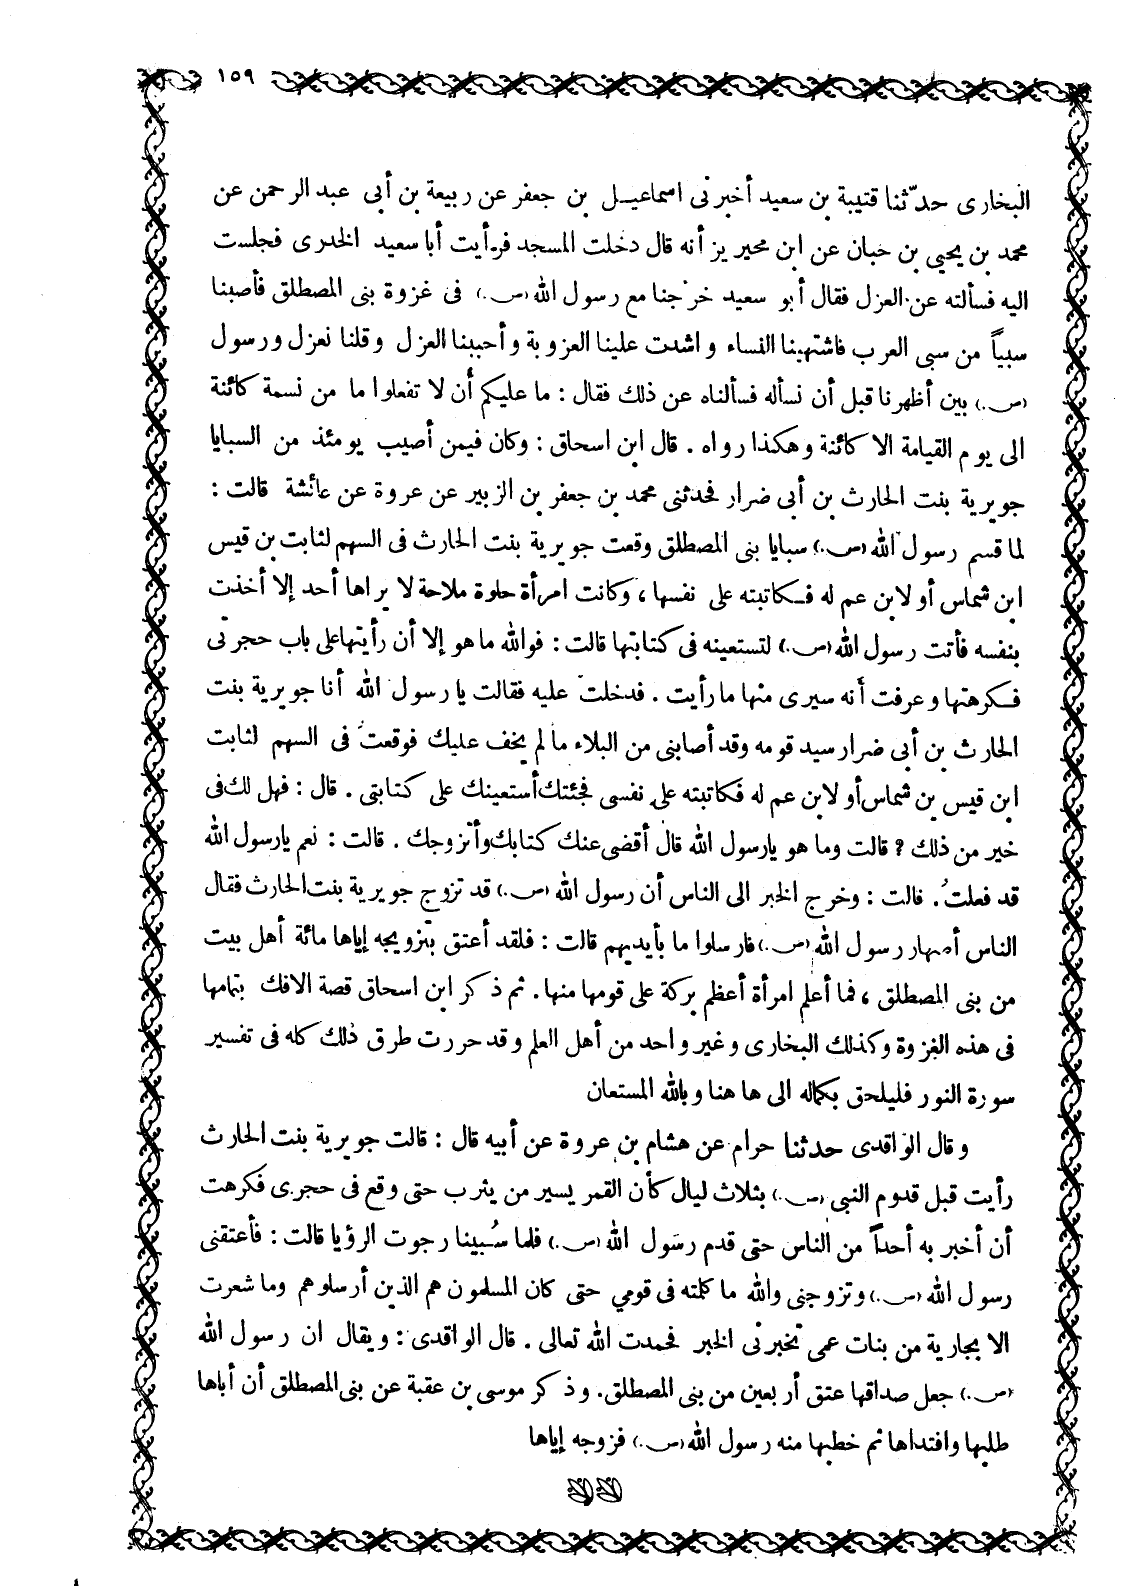 ١٥٩
البخارى حدّثنا قتيبة بن سعيد أخبرنى اسماعيل بن جعفر عن ربيعة بن أبى عبد الرحمن عن
محمد بن يحيى بن حبان عن ابن محيريز أنه قال دخلت المسجد فرأيت أبا سعيد الخدرى فجلست
اليه فسألته عن العزل فقال أبو سعيد خرجنا مع رسول الله (ص.) فى غزوة بنى المصطلق فأصبنا
سبياً من سبى العرب فاشتهينا النساء واشدت علينا العزوبة وأحببنا العزل وقلنا نعزل ورسول
(ص.) بين أظهرنا قبل أن نسأله فسألناه عن ذلك فقال : ما عليكم أن لا تفعلوا ما من نسمة كائنة
الى يوم القيامة الا كائنة وهكذا رواه . قال ابن اسحاق : وكان فيمن أصيب يومئذ من السبايا
جويرية بنت الحارث بن أبى ضرار فحدثنى محمد بن جعفر بن الزبير عن عروة عن عائشة قالت :
لما قسم رسول الله (ص.) سبايا بنى المصطلق وقعت جويرية بنت الحارث فى السهم لثابت بن قيس
ابن شماس أو لابن عم له فكاتبته على نفسها ، وكانت امرأة حلوة ملاحة لا يراها أحد إلا أخذت
بنفسه فأتت رسول الله (ص.) لتستعينه فى كتابتها قالت : فوالله ما هو إلا أن رأيتها على باب حجرتى
فكرهتها وعرفت أنه سيرى منها ما رأيت . فدخلت عليه فقالت يا رسول الله أنا جويرية بنت
الحارث بن أبى ضرار سيد قومه وقد أصابنى من البلاء ما لم يخف عليك فوقعت فى السهم لثابت
ابن قيس بن شماس أو لابن عم له فكاتبته على نفسى فجئتك أستعينك على كتابتى . قال : فهل لك فى
خير من ذلك ? قالت وما هو يارسول الله قال أقضى عنك كتابك وأتزوجك . قالت : نعم يارسول الله
قد فعلتُ . قالت : وخرج الخبر الى الناس أن رسول الله (ص.) قد تزوج جويرية بنت الحارث فقال
الناس أصهار رسول الله (ص.) فارسلوا ما بأيديهم قالت : فلقد أعتق بتزويجه إياها مائة أهل بيت
من بنى المصطلق ، فما أعلم امرأة أعظم بركة على قومها منها . ثم ذكر ابن اسحاق قصة الافك بتمامها
فى هذه الغزوة وكذلك البخارى وغير واحد من أهل العلم وقد حررت طرق ذلك كله فى تفسير
سورة النور فليلحق بكماله الى ها هنا وبالله المستعان
وقال الواقدى حدثنا حرام عن هشام بن عروة عن أبيه قال : قالت جويرية بنت الحارث
رأيت قبل قدوم النبى (ص.) بثلاث ليال كأن القمر يسير من يثرب حتى وقع فى حجرى فكرهت
أن أخبر به أحداً من الناس حتى قدم رسول الله (ص.) فلما سُبينا رجوت الرؤيا قالت : فأعتقنى
رسول الله (ص.) وتزوجنى والله ما كلمته فى قومي حتى كان المسلمون هم الذين أرسلوهم وما شعرت
الا بجارية من بنات عمى تخبرنى الخبر فحمدت الله تعالى . قال الواقدى : ويقال ان رسول الله
(ص.) جعل صداقها عتق أربعين من بنى المصطلق . وذكر موسى بن عقبة عن بنى المصطلق أن أباها
طلبها وافتداها ثم خطبها منه رسول الله (ص.) فزوجه إياها